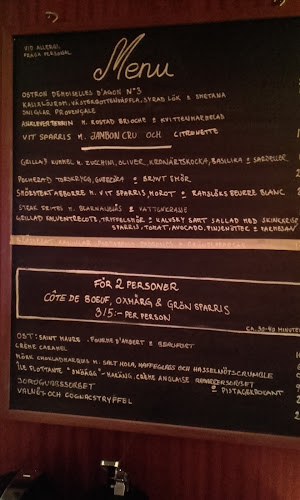 VID ALLERGI,
FRÅGA PERSONAL
Menu
OSTRON DEMOISELLES D'AGON N°3
KALIXLÖJROM, VÄSTERBOTTENVÅFFLA, SYRAD LÖK & SMETANA
SNIGLAR PROVENÇALE
ANKLEVERTERRIN M. ROSTAD BRIOCHE & KVITTENMARMELAD
VIT SPARRIS M. JAMBON CRU OCH CITRONETTE
GRILLAD KUMMEL M. ZUCCHINI, OLIVER, KRONÄRTSKOCKA, BASILIKA & SARDELLER
POCHERAD TORSKRYGG, GUBBRÖRA & BRYNT SMÖR
SMÖRSTEKT ABBORRE M. VIT SPARRIS, MOROT & RAMSLÖKS BEURRE BLANC
STEAK FRITES M. BEARNAISESÅS & VATTENKRASSE
GRILLAD KALVENTRECOTE, TRYFFELSMÖR & KALVSKY SAMT SALLAD MED SKINKCRISP
SPARRIS, TOMAT, AVOCADO, PINJENÖTTER & PARMESAN
FÖR 2 PERSONER
CÔTE DE BOEUF, OXMÄRG & GRÖN SPARRIS
315:- PER PERSON
CA. 30-40 MINUTER
OST: SAINT MAURE, FOURME D'AMBERT & BEAUFORT
CRÈME CARAMEL
MÖRK CHOKLADMARQUIS M. SALT HOLA, KAFFEGLASS OCH HASSELNÖTSCRUMBLE
ÎLE FLOTTANTE "SNÖÄGG" - MARÄNG, CRÈME ANGLAISE
& PISTAGEKROKANT
JORDGUBBSSORBET
VALNÖT- OCH COGNACSTRYFFEL